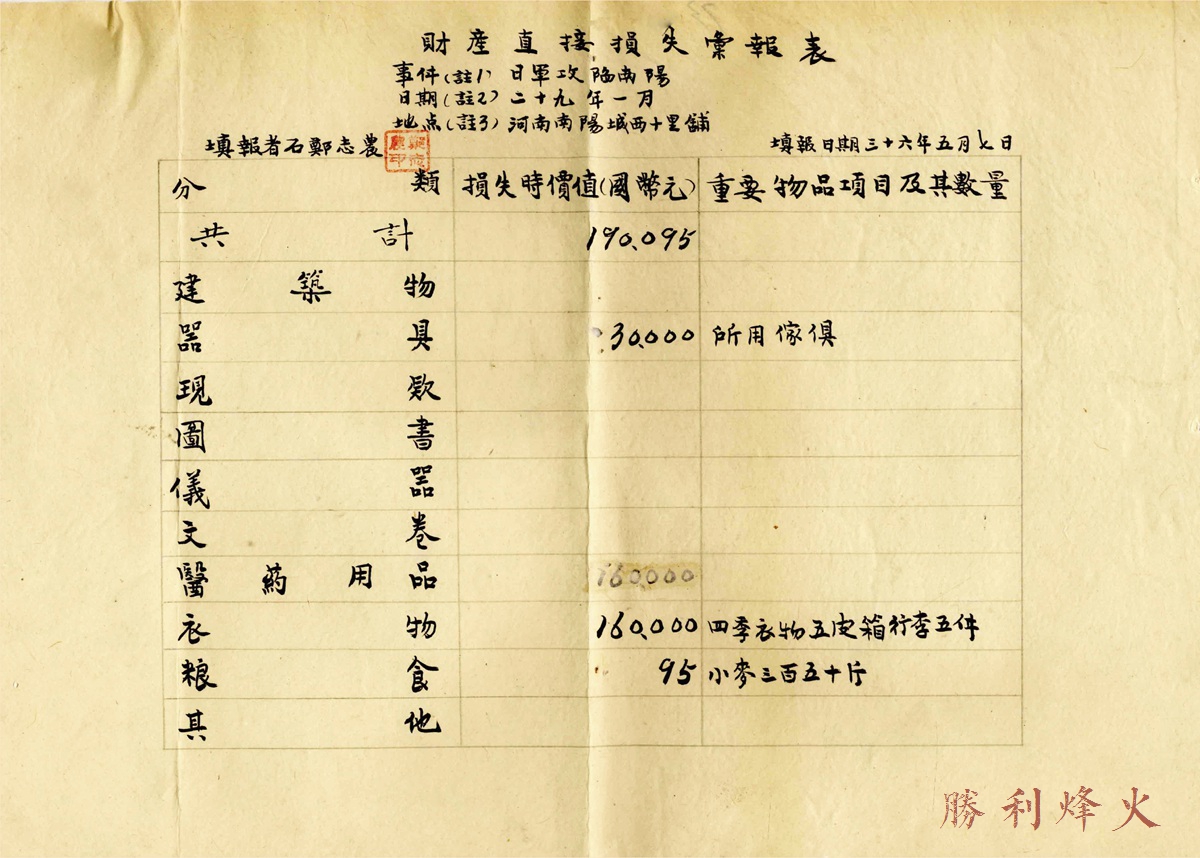 財產直接損失彙報表
事件(註1) 日軍攻陷南陽
日期(註2) 二十九年一月
地点(註3) 河南南陽城西十里舖
填報者石鄭志農
填報日期三十六年五月七日
分類 損失時價值(國幣元) 重要物品項目及其數量
共計 190.095
建築物
器具 30.000 所用傢俱
現款
圖書
儀器
文卷
醫藥用品 160.000
衣物 160.000 四季衣物五皮箱行李五件
粮食 95 小麥三百五十斤
其他
勝利烽火